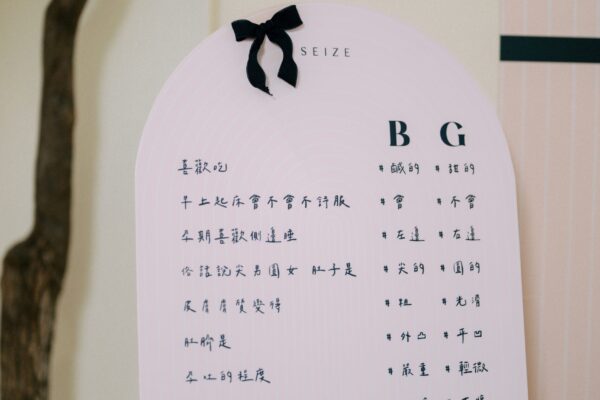 SEIZE
B G
喜歡吃 # 鹹的 # 甜的
早上起床會不會不舒服 # 會 # 不會
孕期喜歡側邊睡 # 左邊 # 右邊
俗話說尖男圓女 肚子是 # 尖的 # 圓的
皮膚膚質變得 # 粗 # 光滑
肚臍是 # 外凸 # 平凹
孕吐的程度 # 嚴重 # 輕微